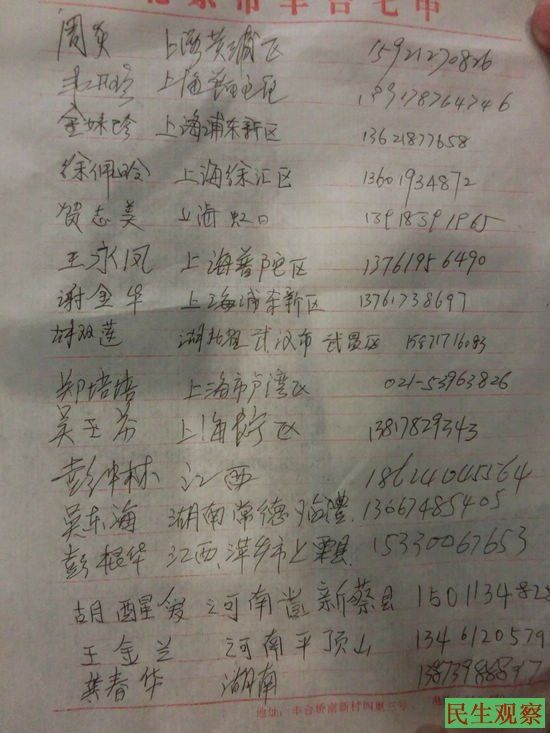 周爽 上海黄浦区 15921270826
上海普陀区
金妹珍 上海浦东新区 13621877658
徐佩玲 上海徐汇区 13601934872
贺志美 上海虹口 13918391965
王永凤 上海普陀区 13761956490
谢金华 上海浦东新区 13761738697
胡双莲 湖北省武汉市武昌区
郑培培 上海市卢湾区 021-53963826
吴玉芬 上海长宁区 13817829343
彭中林 江西
吴东海 湖南常德临澧 13667485405
彭根华 江西萍乡市上栗县 15330067653
河南省新蔡县 150113482
王金兰 河南平顶山 1346120579
龚春华 湖南
地址：丰台桥南新村四里三号
民生观察